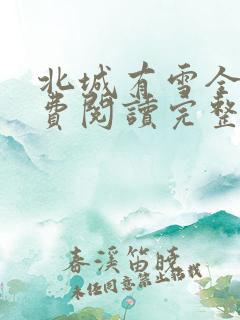 北城有雪全
費閱讀完整
春溪笛曉
未經同意禁止搭訕